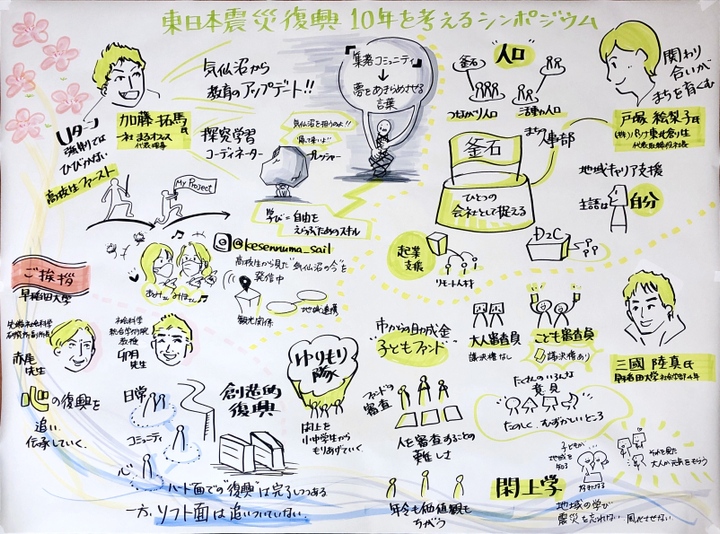 東日本震災復興10年を考えるシンポジウム
気仙沼から
教育のアップデート!!
加藤 拓馬氏
一社 まるオフィス
代表理事
Uターン
ひびかない
高校生ファースト
探究学習
コーディネーター
My Project
『集落コミュニティ』
↓
夢をあきらめさせる
言葉
気仙沼を担うのよ!!
プレッシャー
学び=自由を
えらぶためのスキル
@kesennuma_sail
高校生から見た"気仙沼の今"を
発信中
観光関係
地域連携
"人口"
釜石
つながり人口
活動人口
まちの
人事部
釜石
ひとつの
会社として捉える
関わり
合いが
まちを育くむ
戸塚 絵梨子氏
(株)パソナ東北創生
代表取締役社長
地域キャリア支援
主語は
自分
起業
支援
リモート人材
D2C
ご挨拶
早稲田大学
先端社会科学
研究所副所長
赤尾
先生
社会科学
総合学術院
教授
卯月
先生
心の復興を
追い、
伝承していく。
日常
コミュニティ
心
創造的
復興
ハード面での"復興"は完了しつつある
一方、ソフト面は追いついていない。
ゆりもり
隊
閖上を
小中学生から
もりあげていく。
"市からの助成金"
子どもファンド
大人審査員
議決権なし
こども審査員
議決権あり
ファンドの
審査
人を審査することの
難しさ
たくさんのいろんな
意見
たのしく、むずかしいところ
年令も価値観も
ちがう
三國 陸真氏
早稲田大学社会科学部4年
閖上学
子どもが
地域を
知る
好きになる
それを見た
大人が元気をもらう
地域の学び
震災を忘れない 風化させない